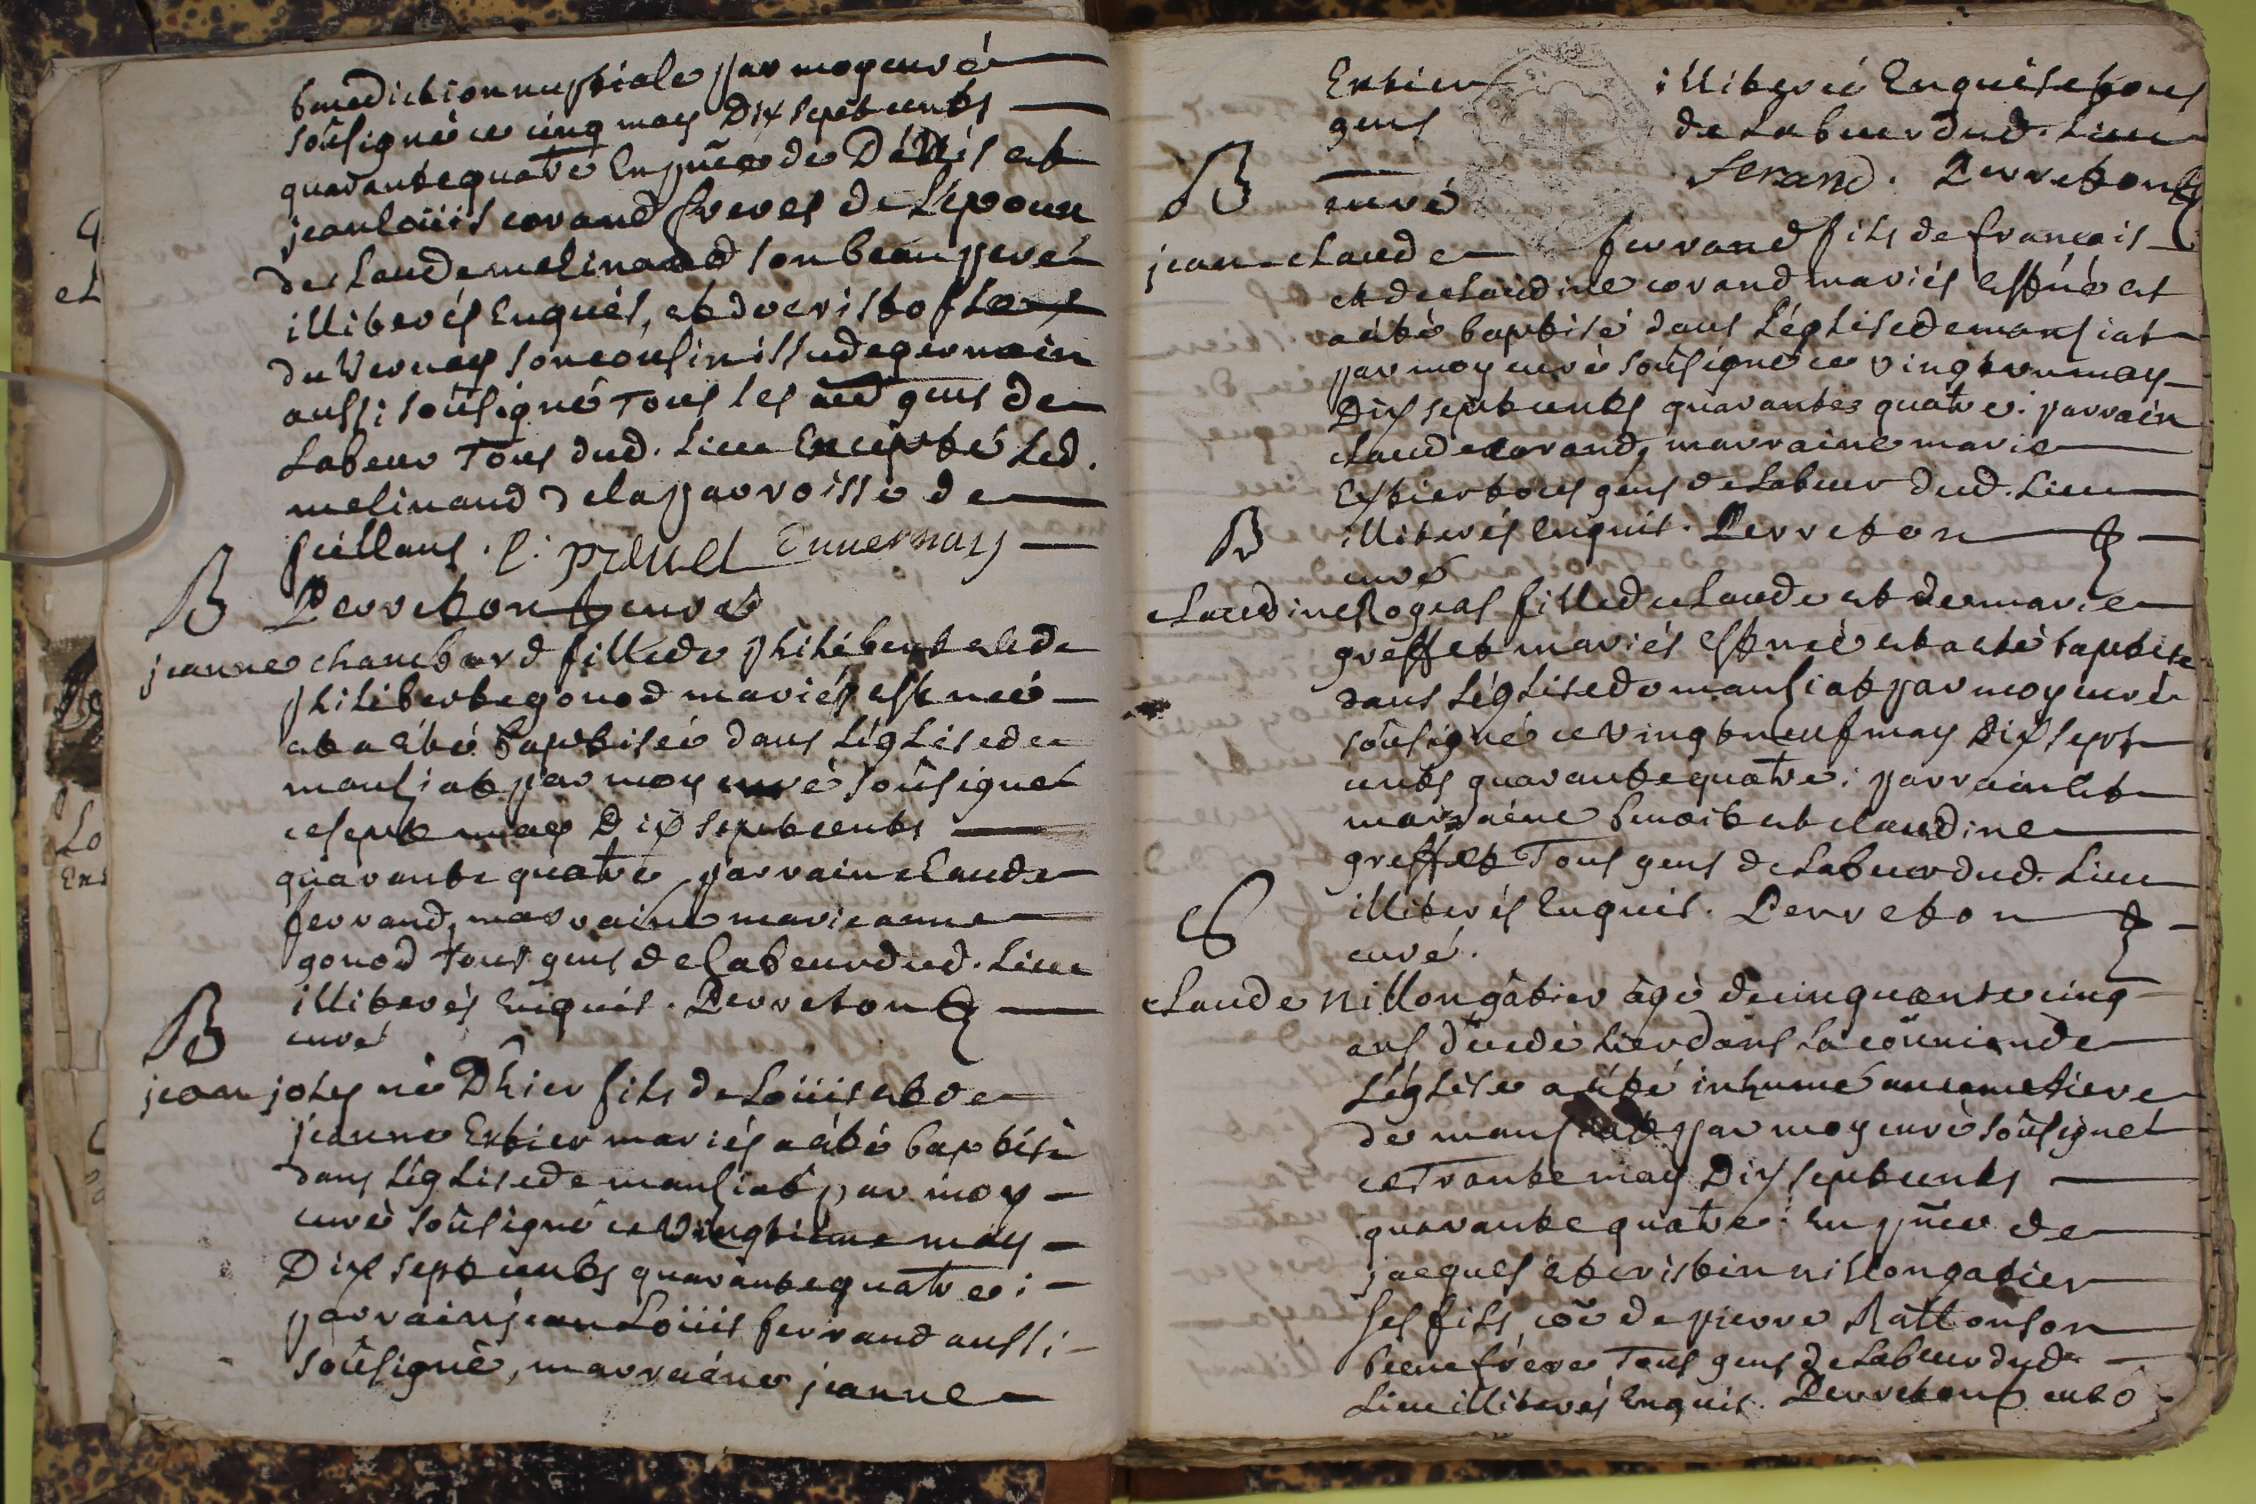 benediction nuptiale par moy curé
soûsigné ce cinq may Dix sept cents
quarante quatre En pñce de Denis et
jean loüis corand freres de L'epoux
de claude melinand son beau pere
illiterés Enquis, et de cristofle
du Vernay son cousin issu de germain
aussi soûsigné Tous les
gens de
Labeur Tous dud. Lieu Excepté Led.
melinand de la parroisse de
Duvernay
Perreton curé
B
jeanne chambard fille de philibert et de
philiberte gonod mariés est née
et a été baptisée dans L'église de
mansiat par moy curé soûsigné
ce sept may Dix sept cents
quarante quatre parrain claude
ferrand, marraine marie anne
gonod tous gens de Labeur dud. Lieu
illiterés Enquis. Perreton
curé
B
jean joly né D'hier fils de Loüis et de
jeanne Extier mariés a été baptisé
dans L'église de mansiat par moy
curé soûsigné ce Vingtième may
Dix sept cents quarante quatre :
parrain jean Loüis ferrand aussi
soûsigné, marraine jeanne
Extier illiterée Enquise tous
gens de Labeur dud. Lieu
ferand. Perreton
curé
B
jean claude ferrand fils de francois
et de claudine corand mariés est né et
a été baptisé dans L'église de mansiat
par moy curé soûsigné ce vingt un may
Dix sept cents quarante quatre : parrain
claude corand, marraine marie
Extier tous gens de Labeur dud. Lieu
illiterés Enquis. Perreton
curé
B
claudine Rogeas fille de claude et de marie
greffet mariés est née et a été baptisée
dans L'église de mansiat par moy curé
soûsigné ce vingt neuf may Dix sept
cents quarante quatre : parrain et
marraine benoit et claudine
greffet Tous gens de Labeur dud. Lieu
illiterés Enquis. Perreton
curé.
S
claude nillon gâtier âgé de cinquante cinq
ans décédé hier dans la coûnion de
L'église a été inhumé au cimetiere
de mansiat par moy curé soûsigné
ce Trente may Dix sept cents
quarante quatre : En pñce de
jacques et cristin nillon gatier
ses fils, cõe de pierre Ratton son
beau frere Tous gens de Labeur dud.
Lieu illiterés Enquis. Perreton curé